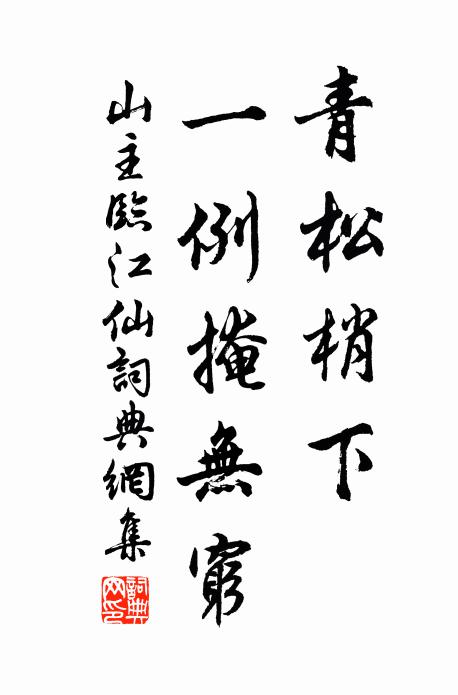 青松梢下
一例掩無窮
山主臨江仙詞典網集
詞典網印